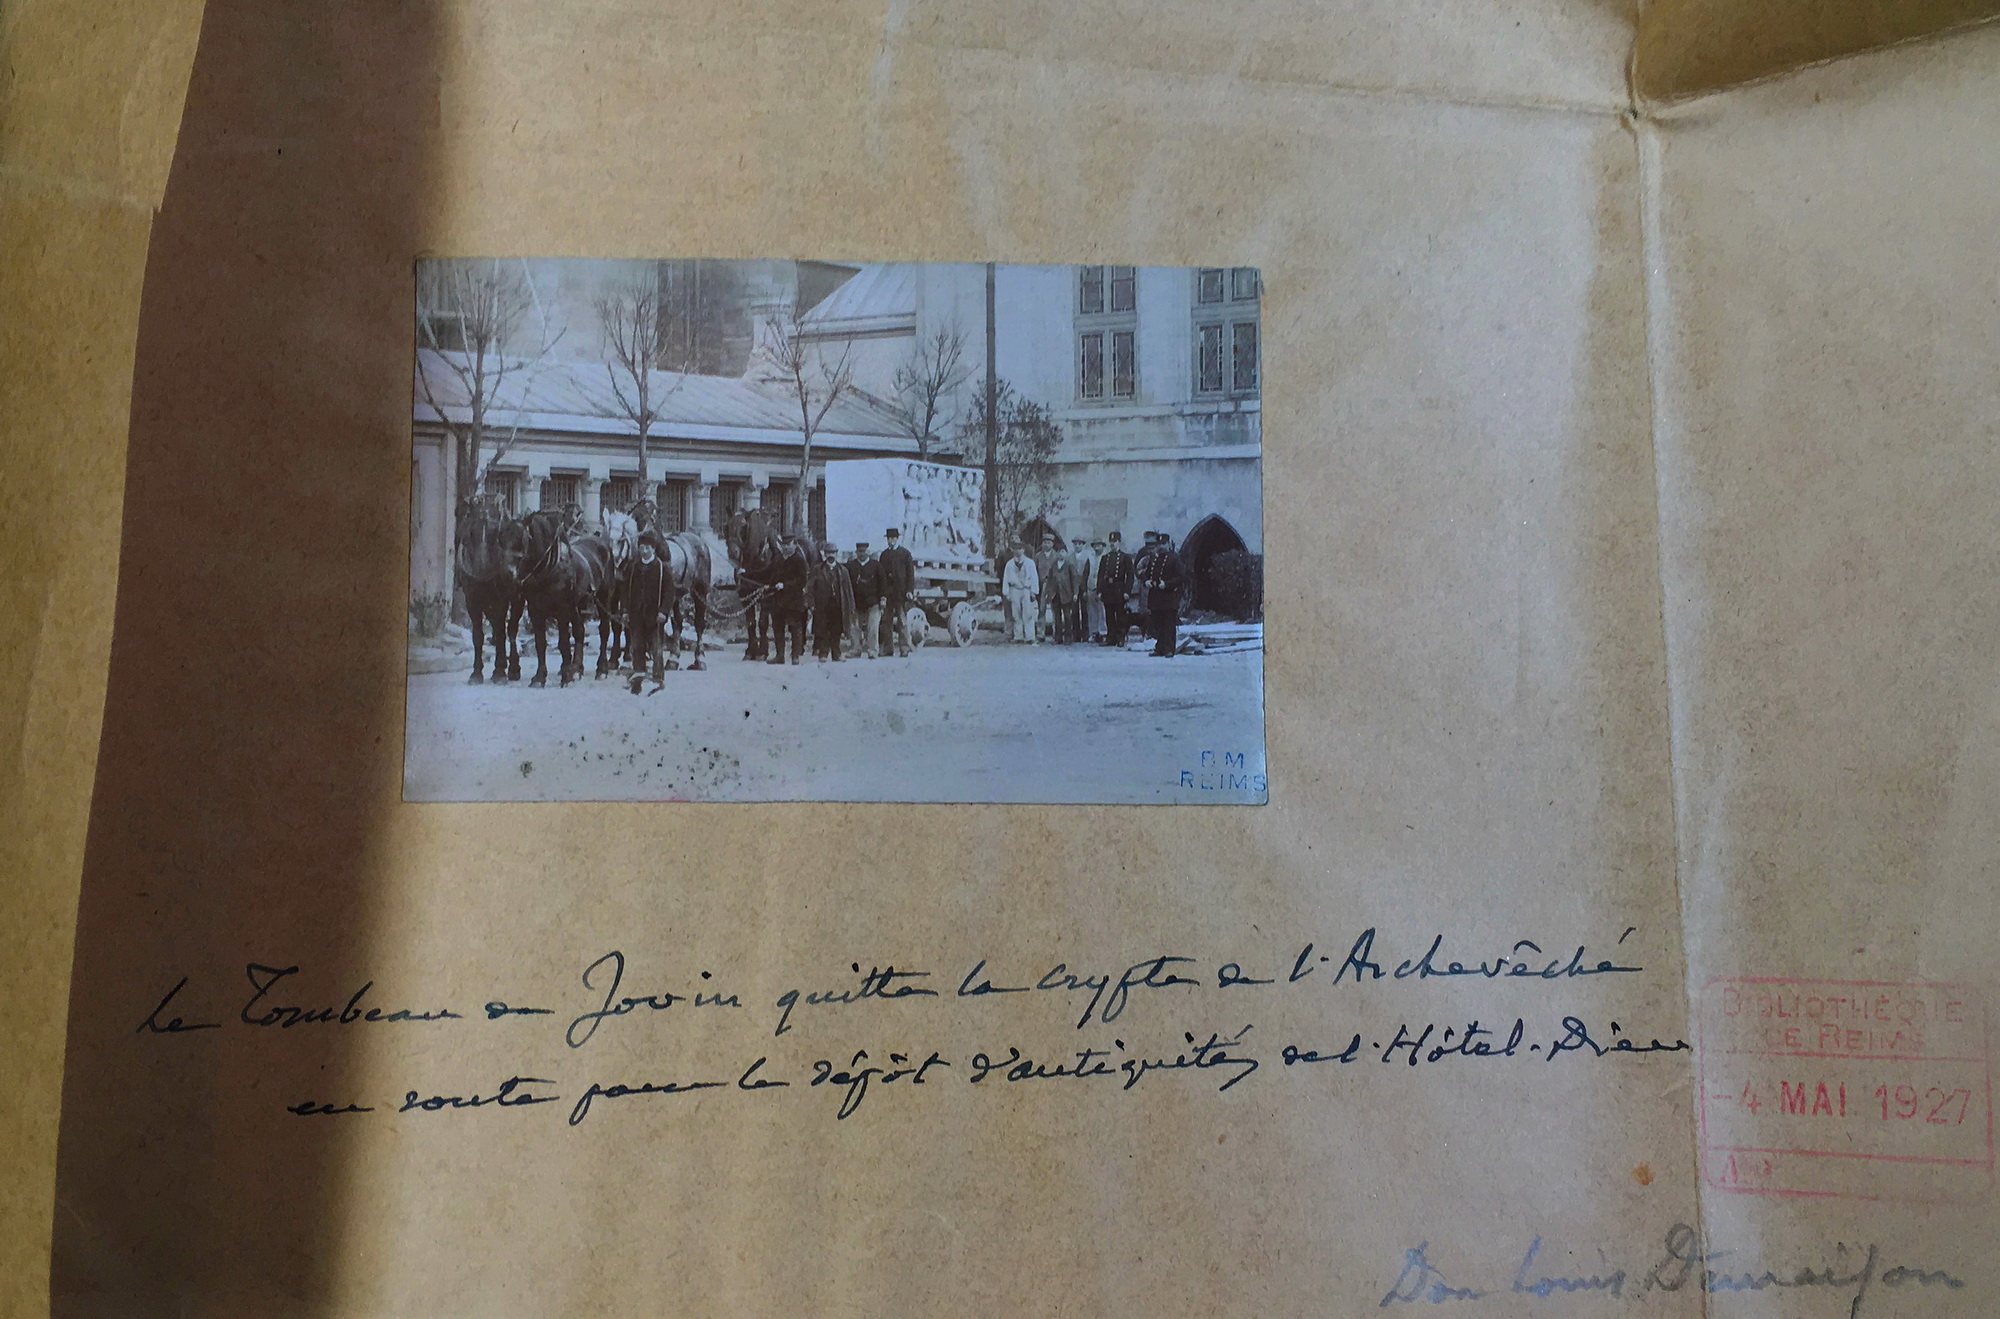 B M
REIMS
Le Tombeau de Jovin quitte la crypte de l'Archevêché
en route pour le dépôt d'antiquités de l'Hôtel-Dieu
BIBLIOTHÈQUE
DE REIMS
-4 MAI 1927
Don Louis Demaison